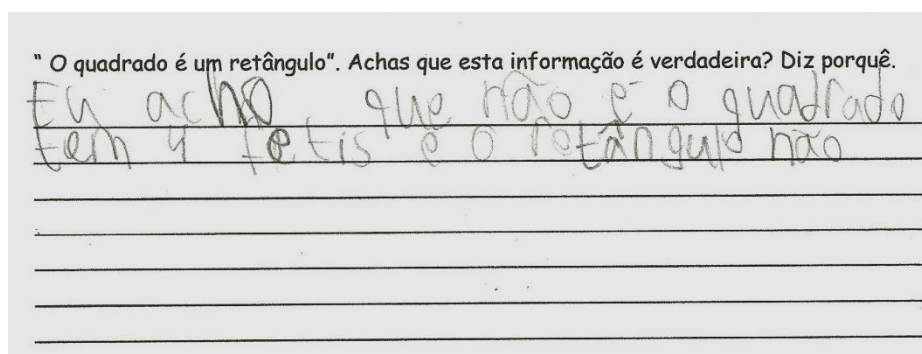 “ O quadrado é um retângulo”. Achas que esta informação é verdadeira? Diz porquê.
Eu acho que não é o quadrado
tem 4 fetis e o retângulo não